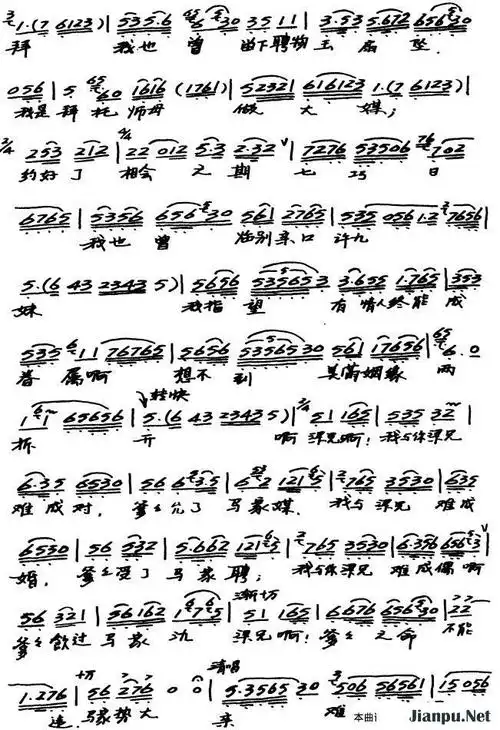 1·(7 6123)| 5356 6 30 35 11 | 3·53 5·672 656 30
拜 我也曾 留下聘物 玉扇坠
056 | 5 65 60 1616 (1761) | 52321 616123 1·(7 6123) |
我是 拜托师母 做大媒;
2/4 253 212 | 4/4 22 012 5·3 2·32 ∨ | 7276 53506 76 702
约好了 相会之期 七巧日
6765 | 5356 656 30 561 2765 | 535 056 1·2 7656 |
我也曾 临别亲口 许九
5·(6 43 2343 5) | 5656 535653 3·655 1·765 | 353
妹 我指望 有情人终能成
535 6 11 76765 | 5656 5356530 561 17656 | 65 6·0
眷属啊 想不到 美满姻缘两
转快
1 61 65656 | 5·(6 43 23435) | 3/4 51 165 | 535 32
拆开 啊 梁兄啊! 我与你梁兄
6·35 6530 | 56 63·5 | 6 12165 | 765 3530 | 635
难成对, 爹爹允了 马家媒. 我与梁兄 难成
6530 | 56 532 | 5·662 12165 | 765 3530 | 6·356 6563 ∨
婚, 爹爹受了 马家聘; 我与你梁兄 难成偶啊
渐切
56 321 | 56162 1765 | 51 165 | 6676 65630 | 22
爹爹饮过 马家酒 梁兄啊! 爹爹之命 不能
十万 清唱
1·276 | 56 276 0 0 | 5·3565 30 506 56561 | 15056
违. 马家势大 亲 难
本曲谱
Jianpu.Net